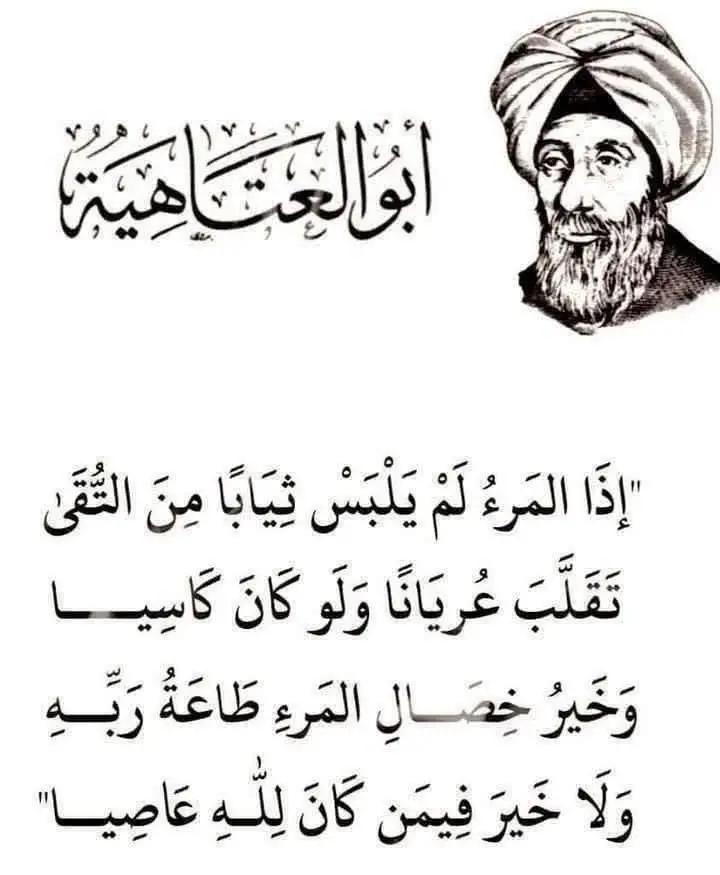 أبُو العَتَاهِيَةُ
"إِذَا المَرءُ لَمْ يَلْبَسْ ثِيَابًا مِنَ التُّقَىٰ
تَقَلَّبَ عُريَانًا وَلَو كَانَ كَاسِيـــــا
وَخَيرُ خِصَـــالِ المَرءِ طَاعَةُ رَبِّـــهِ
وَلَا خَيرَ فِيمَن كَانَ لِلّٰـهِ عَاصِيـــا"